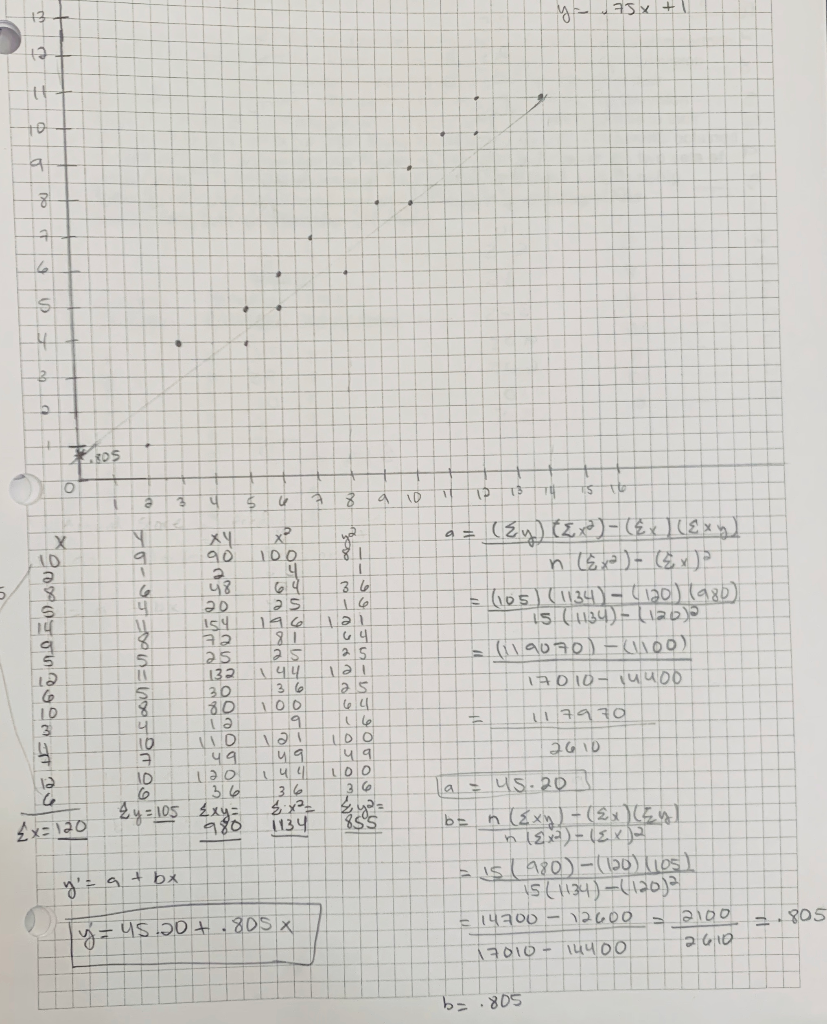 y = .75x + 1
13
12
11
10
9
8
7
6
5
4
3
2
1
.805
0
1 2 3 4 5 6 7 8 9 10 11 12 13 14 15 16
x y xy x² y²
10 9 90 100 81
2 1 2 4 1
8 6 48 64 36
5 4 20 25 16
14 11 154 196 121
9 8 72 81 64
5 5 25 25 25
12 11 132 144 121
6 5 30 36 25
10 8 80 100 64
3 4 12 9 16
11 10 110 121 100
7 7 49 49 49
12 10 120 144 100
6 6 36 36 36
Σx = 120 Σy = 105 Σxy = 980 Σx² = 1134 Σy² = 855
y' = a + bx
y' = 45.20 + .805x
a = (Σy)(Σx²) - (Σx)(Σxy)
n(Σx²) - (Σx)²
= (105)(1134) - (120)(980)
15(1134) - (120)²
= (119070) - (1100)
17010 - 14400
= 117970
2610
a = 45.20
b = n(Σxy) - (Σx)(Σy)
n(Σx²) - (Σx)2
= 15(980) - (120)(105)
15(1134) - (120)²
= 14700 - 12600 = 2100 = .805
17010 - 14400 2610
b = .805